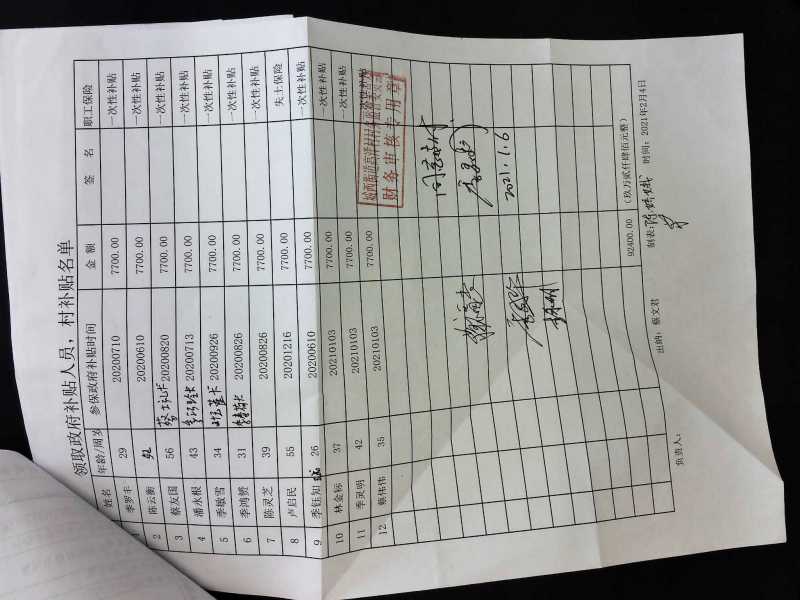 领取政府补贴人员，村补贴名单
姓名 年龄/周岁 参保政府补贴时间 金 额 签 名 职工保险
1 季梦丰 29 20200710 7700.00 一次性补贴
2 陈云衡 20200610 7700.00 一次性补贴
3 蔡友国 56 20200820 7700.00 一次性补贴
4 潘永根 43 20200713 7700.00 一次性补贴
5 季敏雪 34 20200926 7700.00 一次性补贴
6 季鸿赞 31 20200826 7700.00 一次性补贴
7 陈灵芝 39 20200826 7700.00 一次性补贴
8 卢启民 55 20201216 7700.00 失土保险
9 季钰知 26 20200610 7700.00 一次性补贴
10 林金标 37 20210103 7700.00 一次性补贴
11 季灵明 42 20210103 7700.00 一次性补贴
12 蔡伟伟 35 20210103 7700.00 一次性补贴
财务审核专用章
同意支付
2021.1.6
92400.00 （玖万贰仟肆佰元整）
负责人： 出纳：蔡文君 制表： 时间：2021年2月4日